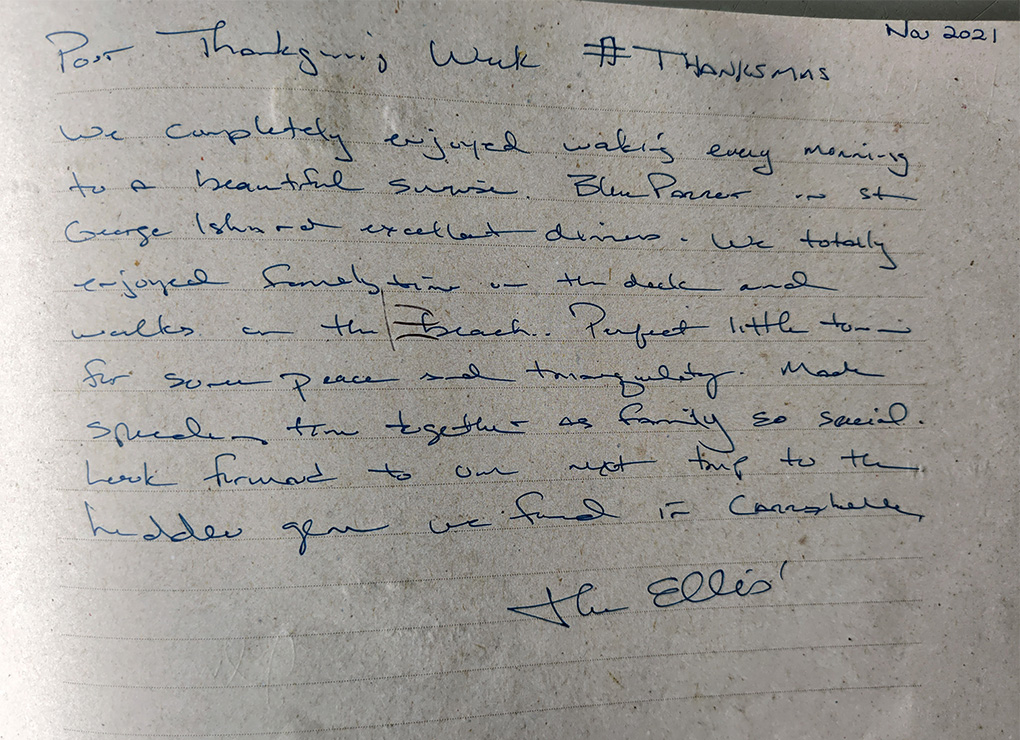 Nov 2021
Post Thanksgiving Week #THANKSMAS
We completely enjoyed waking every morning
to a beautiful sunrise. Blue Parrot in st
George Island excellent dinners. We totally
enjoyed family time on the deck and
walks on the beach.. Perfect little town
for some peace and tranquility. Made
spending time together as family so special.
Look forward to our next trip to the
hidden gem we found in Carrabelle
The Ellis'